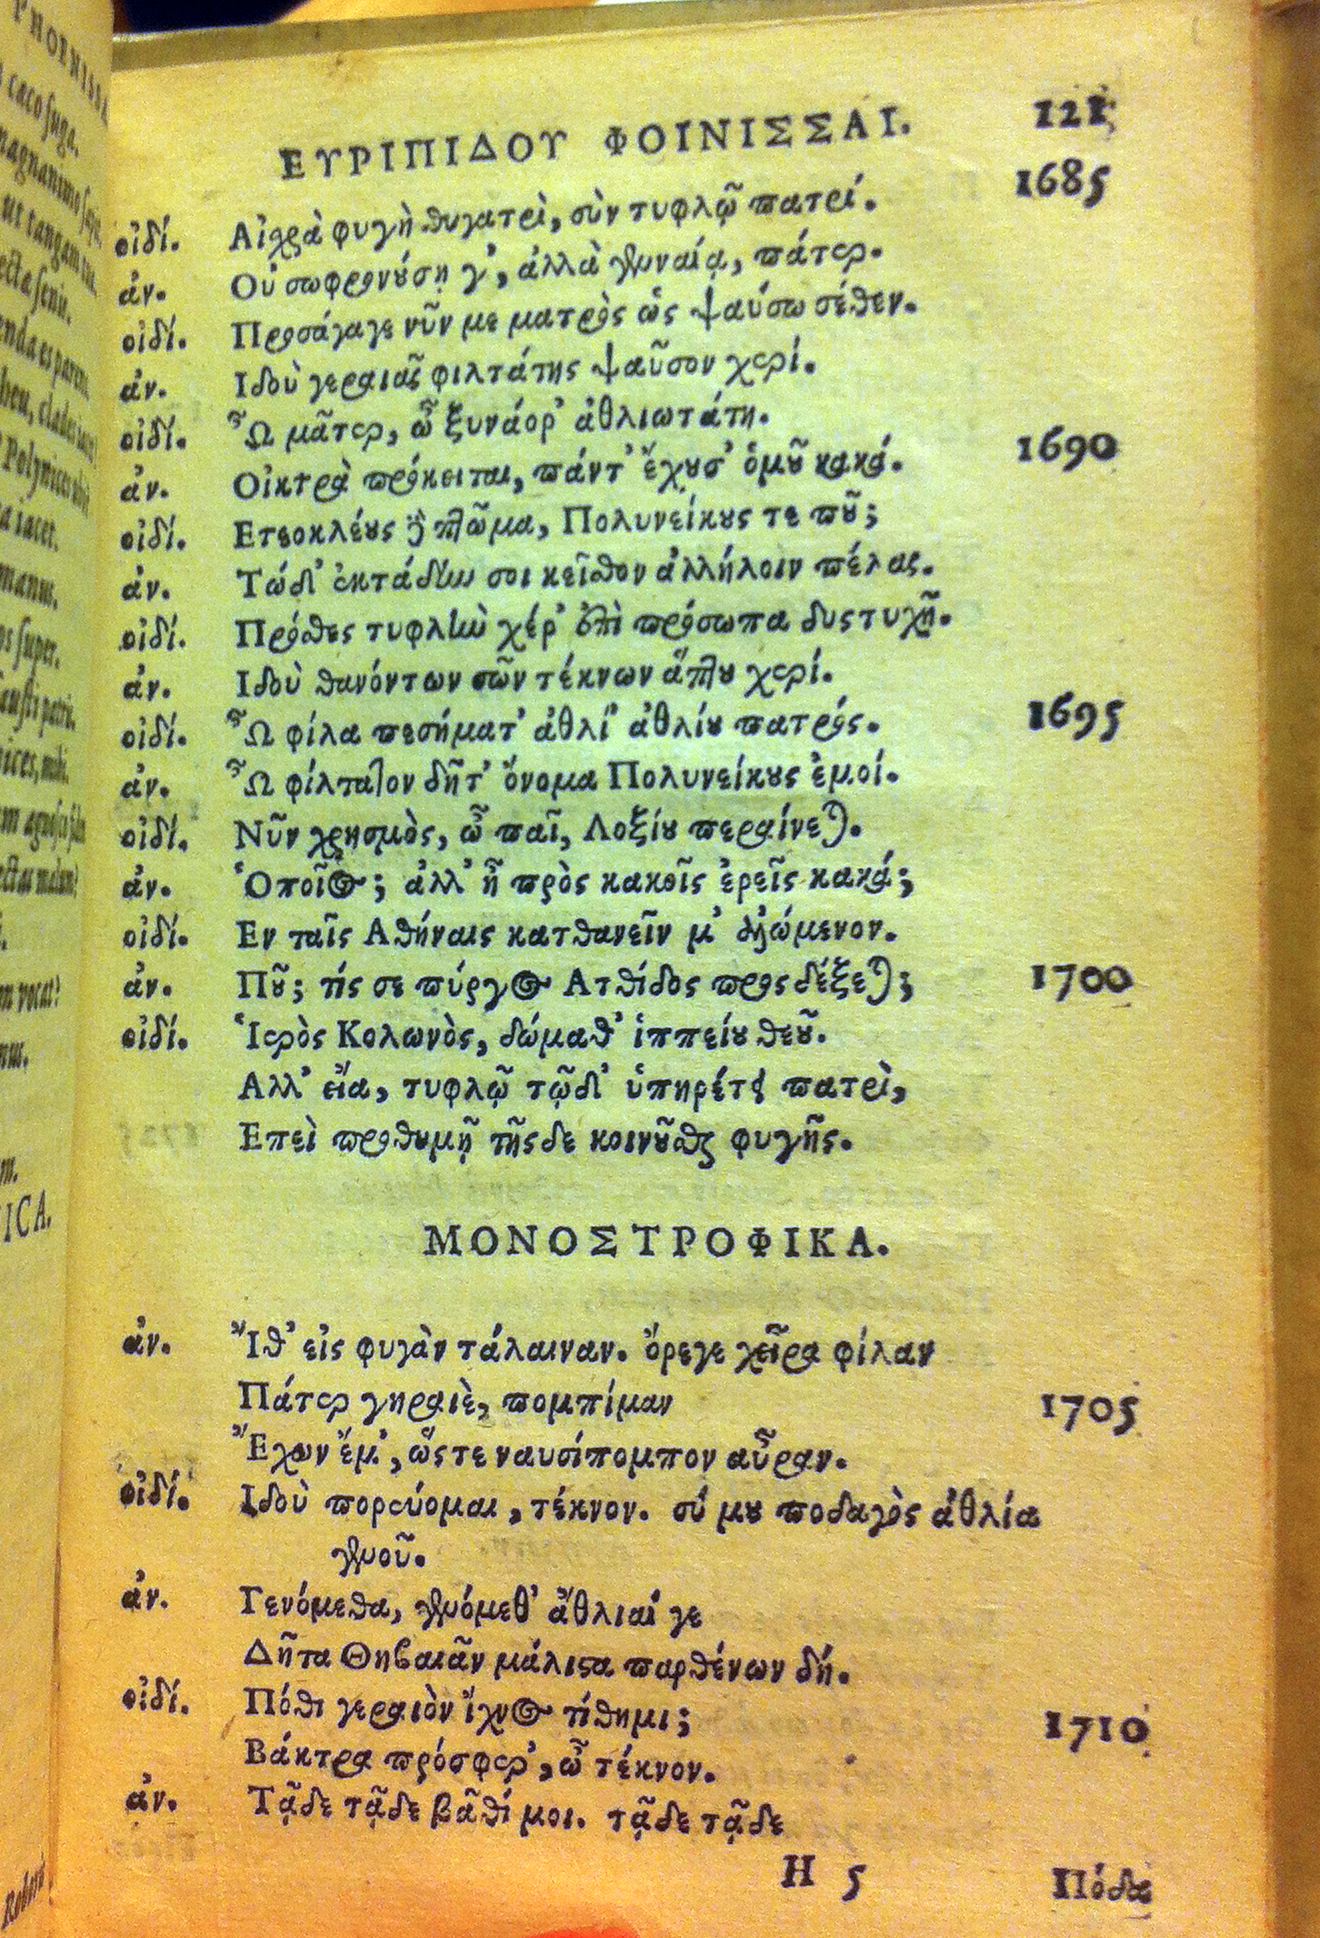 ΕΥΡΙΠΙΔΟΥ ΦΟΙΝΙΣΣΑΙ. 121
οἰδί. Αἰχρὰ φυγὴ θυγατρὶ, σὺν τυφλῷ πατρί. 1685
ἀν. Οὐ σωφρονούσῃ γ', ἀλλὰ γενναίᾳ, πάτερ.
οἰδί. Προσάγαγε νῦν με ματρὸς ὡς ψαύσω σέθεν.
ἀν. Ιδοὺ γεραιᾶς φιλτάτης ψαῦσον χερί.
οἰδί. Ὦ μᾶτερ, ὦ ξυνάορ' ἀθλιωτάτη.
ἀν. Οἰκτρὰ πρόκειται, πάντ' ἔχουσ' ὁμοῦ κακά. 1690
οἰδί. Ετεοκλέους δὲ πτῶμα, Πολυνείκους τε ποῦ;
ἀν. Τώδ' ἐκτάδην σοι κεῖσθον ἀλλήλοιν πέλας.
οἰδί. Πρόσθες τυφλὴν χέρ' ἐπὶ πρόσωπα δυςτυχῆ.
ἀν. Ιδοὺ θανόντων σῶν τέκνων ἅπτου χερί.
οἰδί. Ὦ φίλα πεσήματ' ἄθλι' ἀθλίου πατρός. 1695
ἀν. Ὦ φίλτατον δῆτ' ὄνομα Πολυνείκους ἐμοί.
οἰδί. Νῦν χρησμὸς, ὦ παῖ, Λοξίου περαίνεται.
ἀν. Ὁποῖος; ἀλλ' ἦ πρὸς κακοῖς ἐρεῖς κακά;
οἰδί. Εν ταῖς Αθήναις κατθανεῖν μ' ἀλώμενον.
ἀν. Ποῦ; τίς σε πύργος Ατθίδος προςδέξεται; 1700
οἰδί. Ἱερὸς Κολωνὸς, δώμαθ' ἱππείου θεοῦ.
Αλλ' εἴα, τυφλῷ τῷδ' ὑπηρέτει πατρὶ,
Επεὶ προθυμῇ τῆςδε κοινοῦσθαι φυγῆς.
ΜΟΝΟΣΤΡΟΦΙΚΑ.
ἀν. Ἴθ' εἰς φυγὰν τάλαιναν. ὄρεγε χεῖρα φίλαν
Πάτερ γηραιὲ, πομπίμαν 1705
Ἔχων ἔμ', ὥςτε ναυσίπομπον αὖραν.
οἰδί. Ιδοὺ πορεύομαι, τέκνον. σύ μου ποδαγὸς ἀθλία
γενοῦ.
ἀν. Γενόμεθα, γενόμεθ' ἄθλιαί γε
Δῆτα Θηβαιᾶν μάλιστα παρθένων δή.
οἰδί. Πόθι γεραιὸν ἴχνος τίθημι; 1710
Βάκτρα πρόσφερ', ὦ τέκνον.
ἀν. Τᾷδε τᾷδε βᾶθί μοι. τᾷδε τᾷδε
Η 5 Πόδα